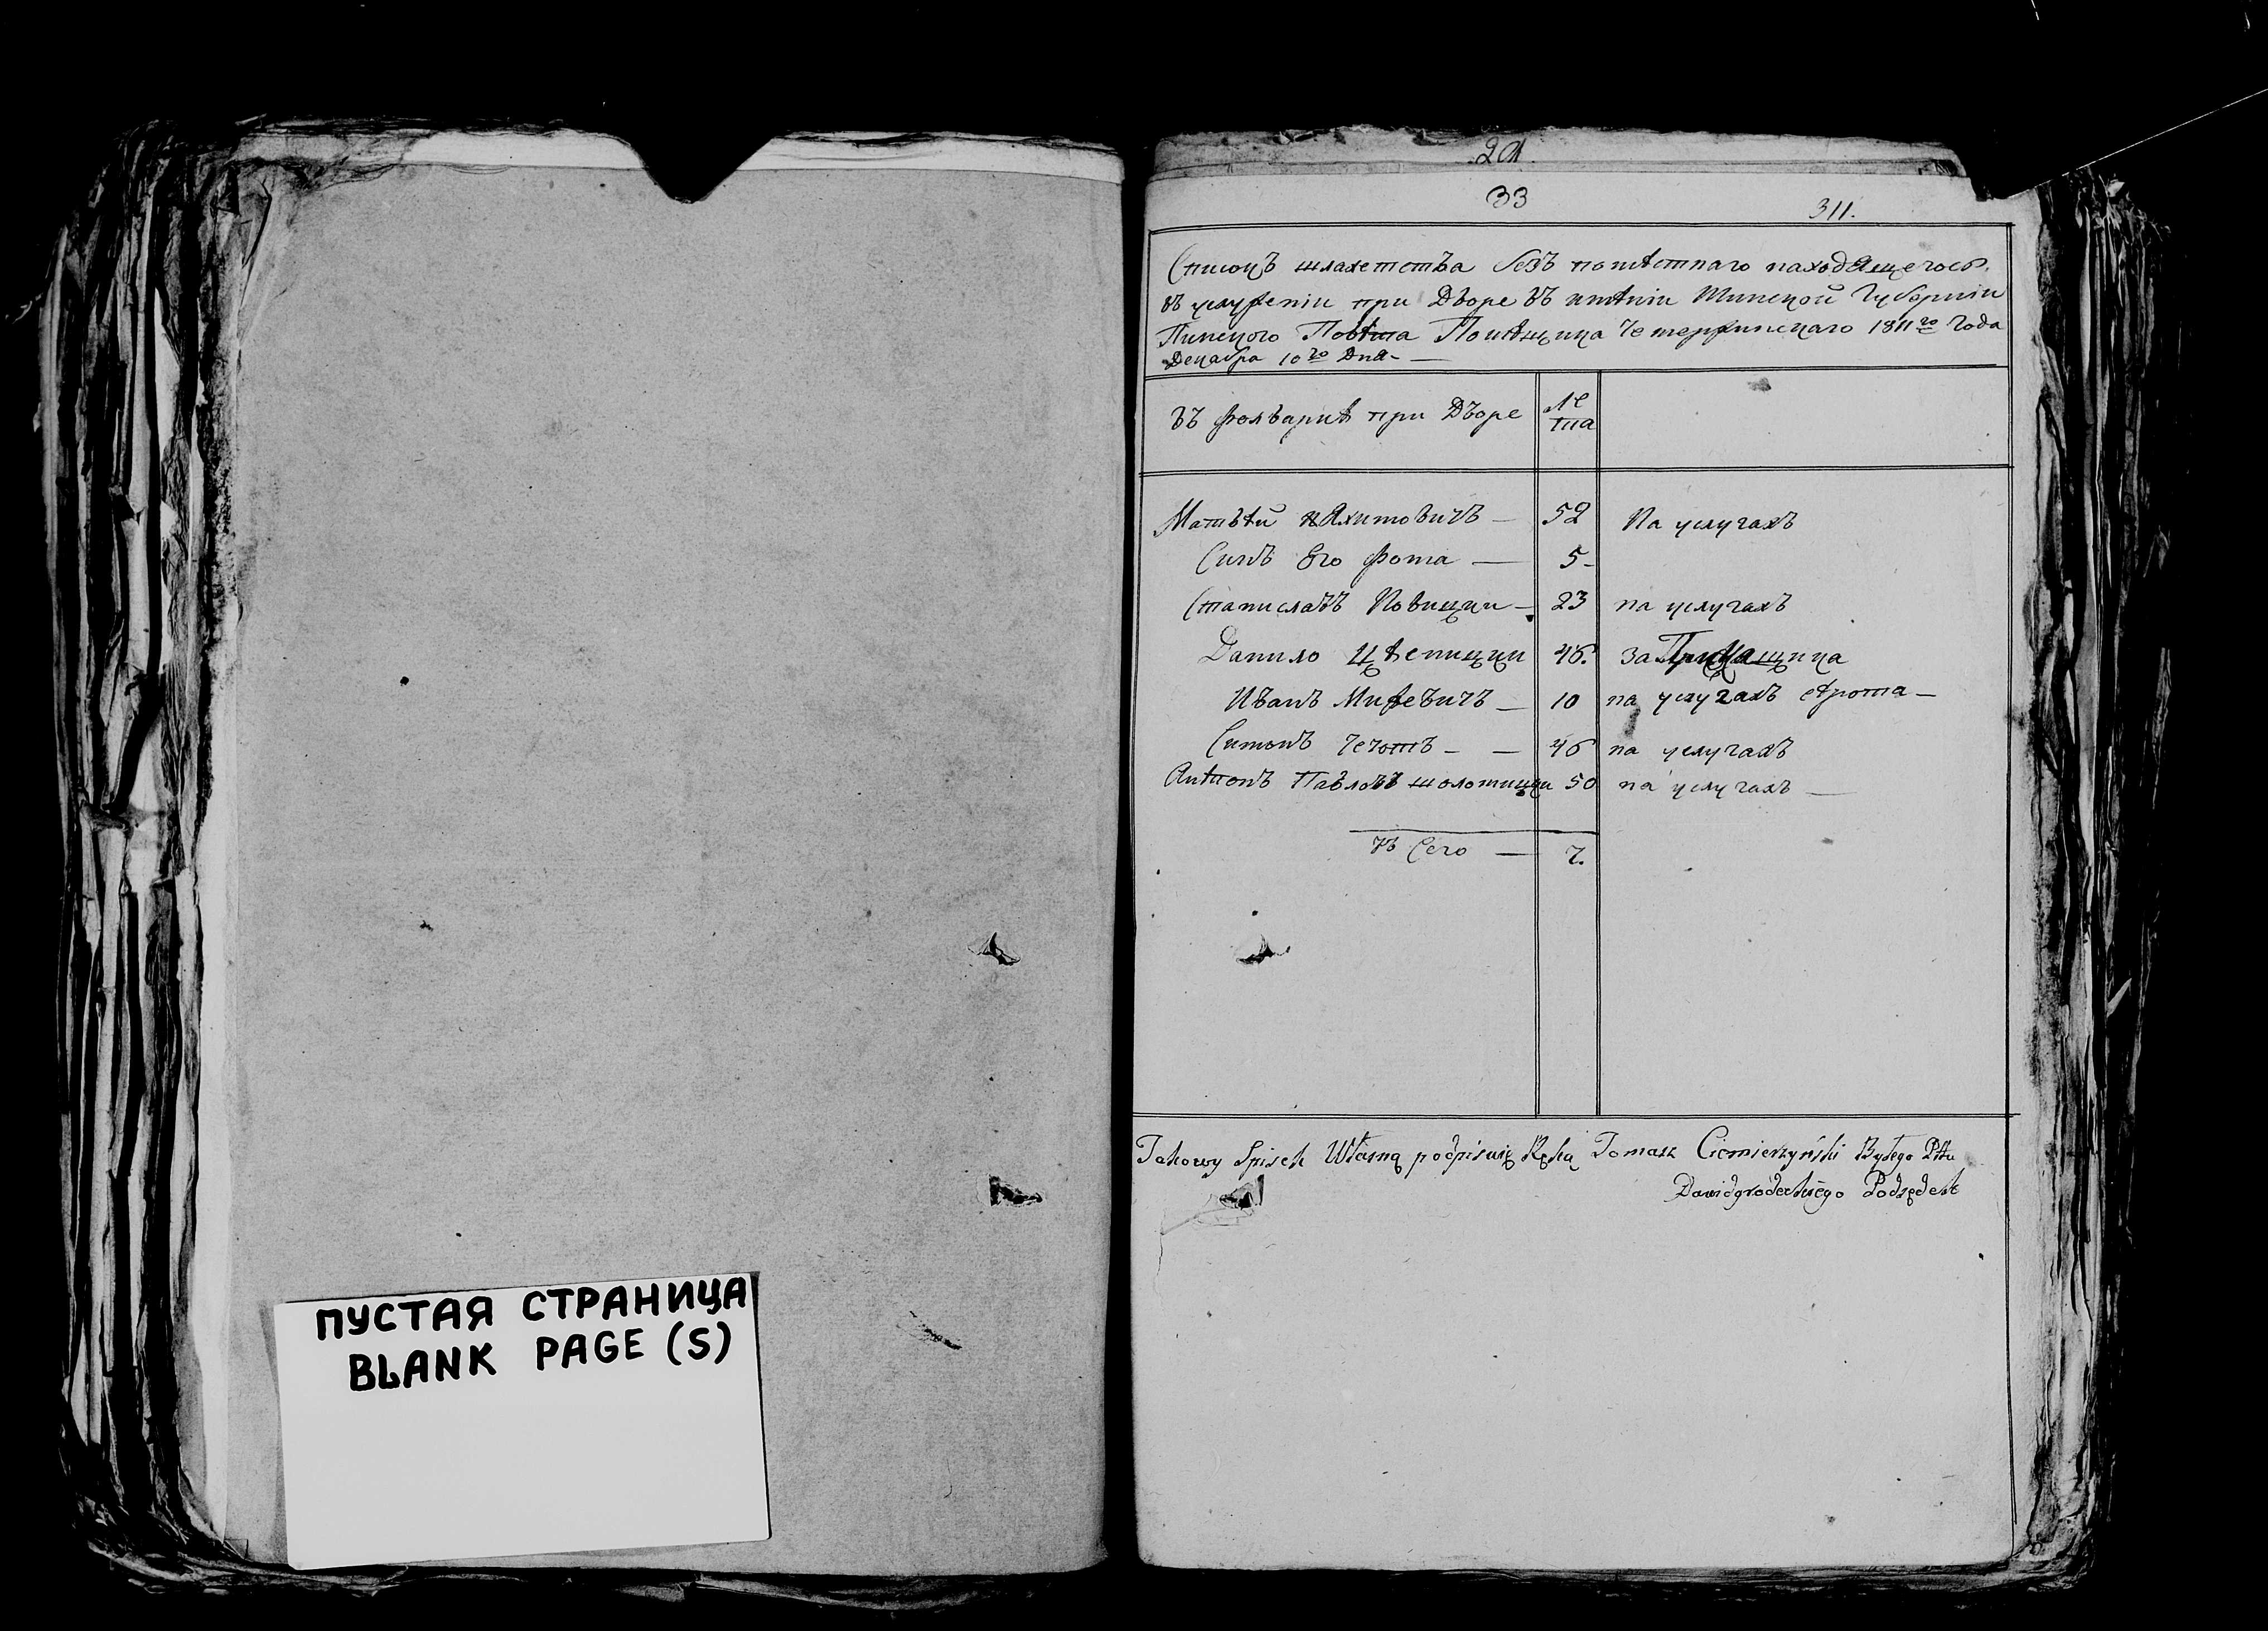 ПУСТАЯ СТРАНИЦА
BLANK PAGE (S)
201.
33
311.
Списокъ шлахетства безъ помѣстнаго находящегось
въ услуженіи при Дворе въ имѣніи Минской Губерніи
Пинского Повѣта Помѣщика 1811го Года
Декабра 10го Дня
въ фолваркѣ при Дворе
Ле
та
Матвѣй 52 На услугахъ
Синъ Его Фома 5
Станиславъ Новицки 23 на услугахъ
Данило 46. за
Иванъ 10 на услугахъ
Симонъ Чечотъ 46 на услугахъ
Антонъ Павловъ 50 на услугахъ
въ Сего 7.
Takowy Spisek Własną podpisuię Ręką Tomasz Ciemierzyński Byłego Pttu
Dawidgrodeckiego Podsędek